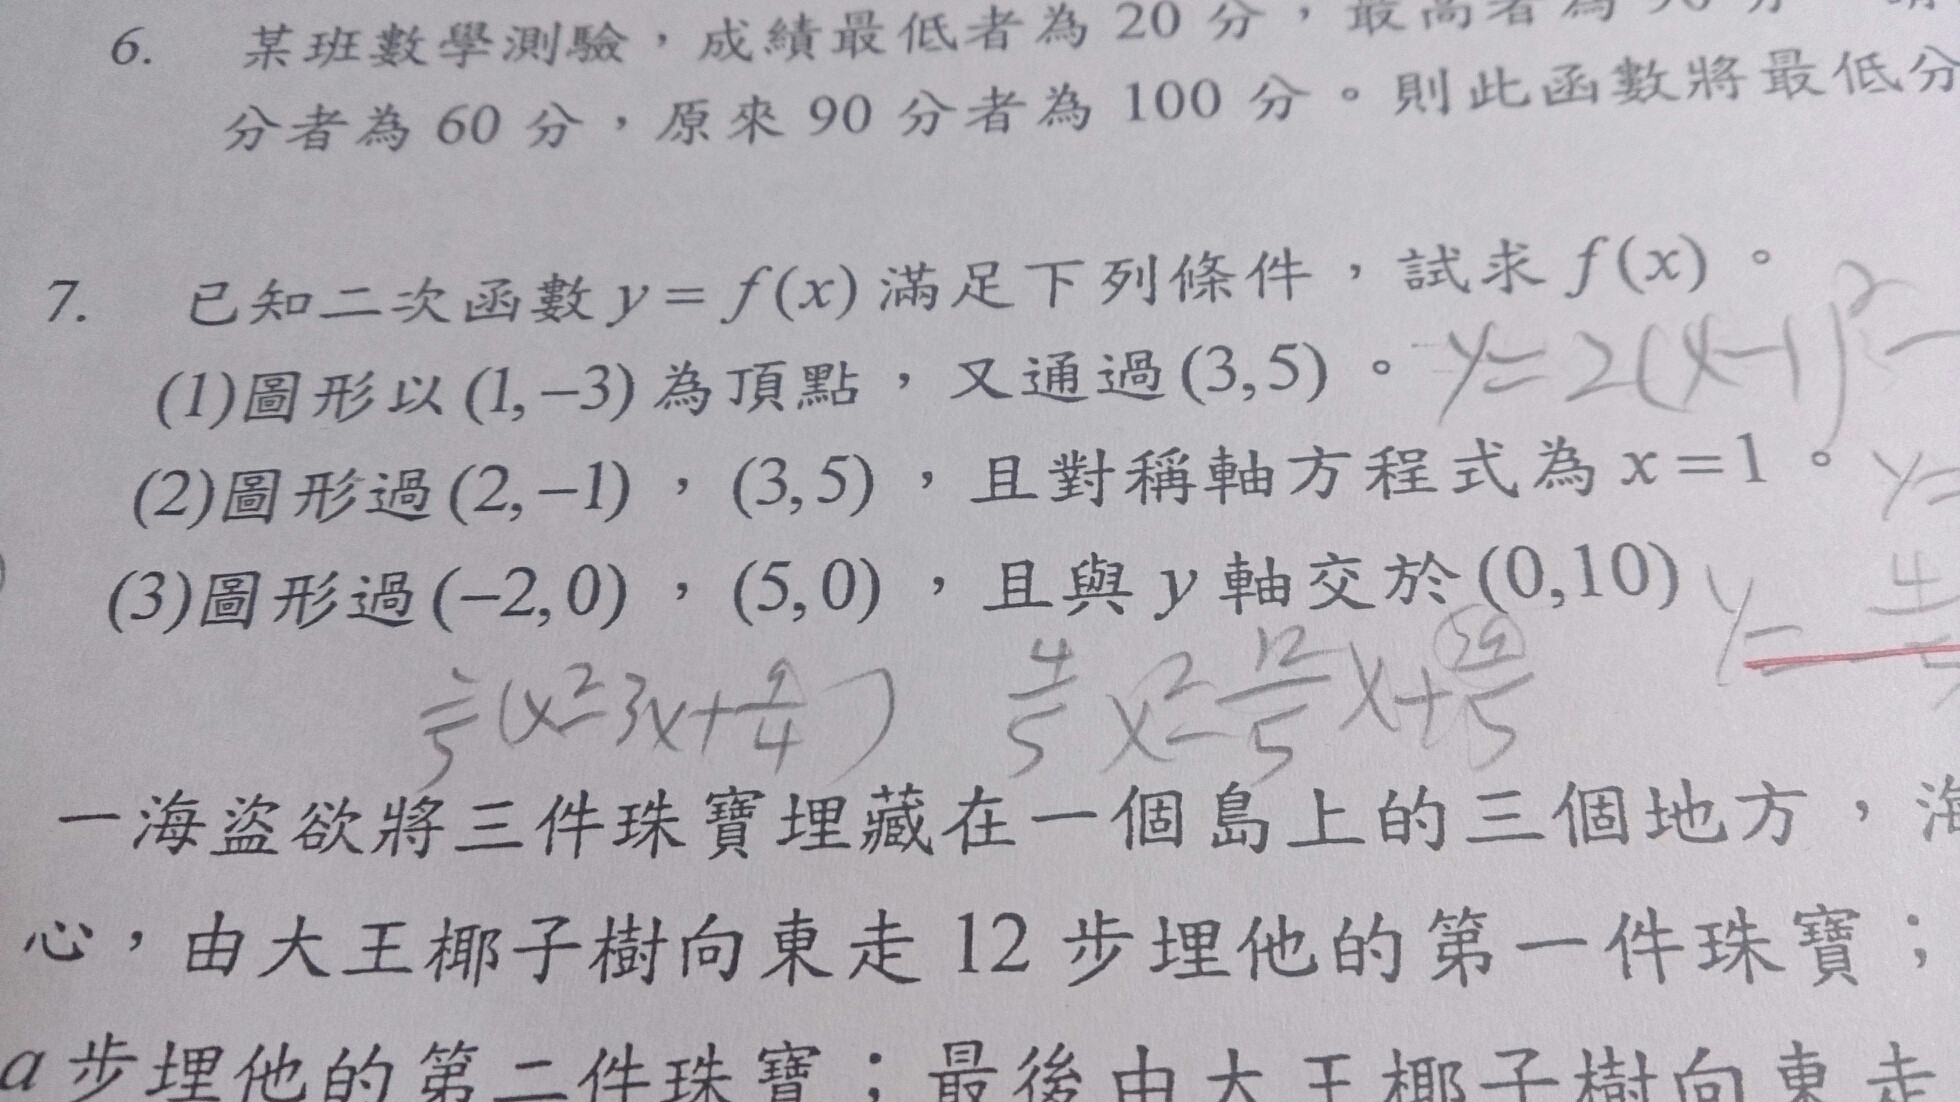 6. 某班數學測驗，成績最低者為 20 分，最高者為
分者為 60 分，原來 90 分者為 100 分。則此函數將最低分
7. 已知二次函數 y = f(x) 滿足下列條件，試求 f(x)。
(1)圖形以 (1,−3) 為頂點，又通過 (3,5)。 y=2(x-1)²-
(2)圖形過 (2,−1)，(3,5)，且對稱軸方程式為 x=1。 y=
(3)圖形過 (−2,0)，(5,0)，且與 y 軸交於 (0,10) y=
(x²-3x+9/4) 4/5 x²-12/5 x+29/5
一海盜欲將三件珠寶埋藏在一個島上的三個地方，海
心，由大王椰子樹向東走 12 步埋他的第一件珠寶；
a 步埋他的第二件珠寶；最後由大王椰子樹向東走